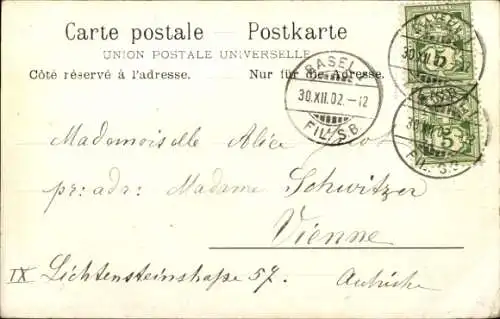 Carte postale Postkarte
UNION POSTALE UNIVERSELLE
Côté réservé à l'adresse. Nur für die Adresse.
BASEL
30.XII.02.-12
FIL. S B
BASEL
30.XII.02.-12
5
5
Mademoiselle Alice
pr: adr: Madame Schwitzer
Vienne
IX Lichtensteinstraße 57. Autriche